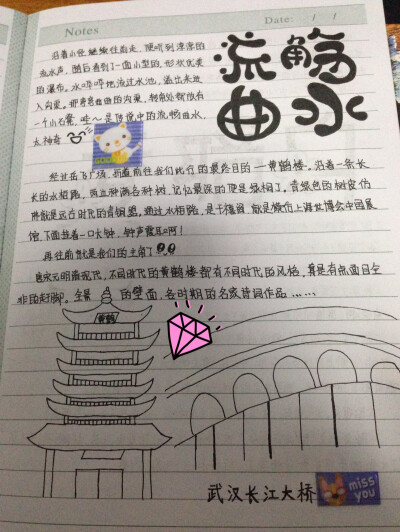 Notes
Date: / /
流觞
曲水
沿着小径继续往前走,便听到潺潺的
流水声,随后看到了一面小型的,形状优美
的瀑布。水哗哗地流过水池,溢出来进
入沟里。把弯弯曲曲的沟里,转角处都放有
一个小石凳,哇~是传说中的流觞曲水,
太神奇
经过岳飞广场,街道前往我们此行的最终目的一黄鹤楼。沿着一条长
长的水梧路,两边种满各种树,记忆最深的便是梧桐了。青绿色的树皮仿
佛就是远古时代的青铜器。通过水梧路,是千禧阁,
馆,下面挂着一口大钟,钟声震耳啊!
再往前就是我们的主角了
唐宋元明清现代,不同时代的黄鹤楼都有不同时代的风格,真是有点面目全
非的赶脚。全景 的壁画,各时期的名家诗词作品……
黄鹤
武汉长江大桥
miss
you